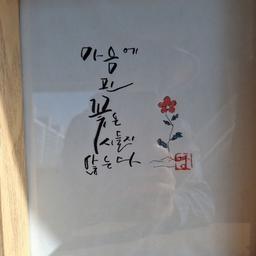 마음에
핀
꽃은
시들지
않는다
영